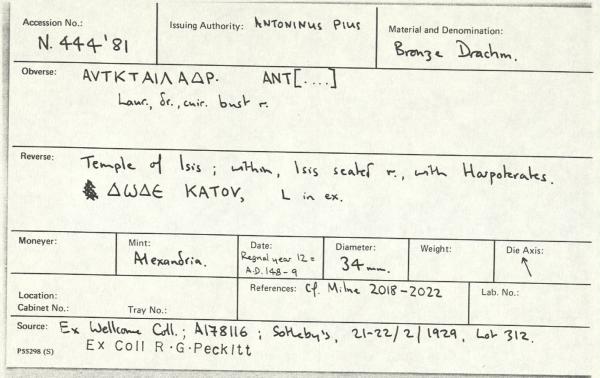 Accession No.: Issuing Authority: ANTONINUS PIUS Material and Denomination:
N. 444'81 Bronze Drachm.
Obverse: ΑVΤΚΤΑΙΛΑΔΡ. ΑΝΤ[....]
Laur., dr., cuir. bust r.
Reverse: Temple of Isis; within, Isis seated r., with Harpokrates.
ΔωΔΕ ΚΑΤΟV, L in ex.
Moneyer: Mint: Date: Diameter: Weight: Die Axis:
Alexandria. Regnal year 12 = 34 mm. ↑
A.D. 148-9
Location: References: Cf. Milne 2018-2022 Lab. No.:
Cabinet No.: Tray No.:
Source: Ex Wellcome Coll.; A178116; Sotheby's, 21-22/2/1929, Lot 312.
PS5298 (S) Ex Coll R.G.Peckitt